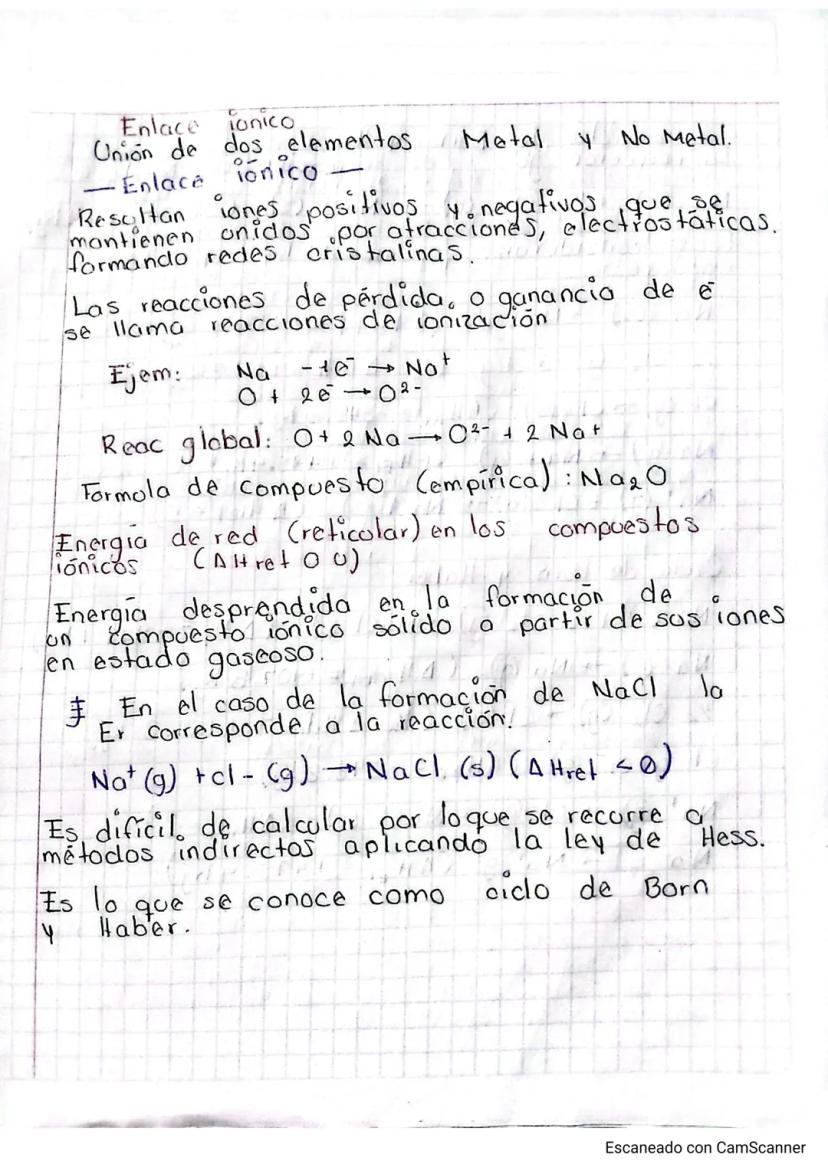 Enlace iónico
Unión de dos elementos Metal y No Metal.
— Enlace iónico —
Resultan iones positivos y negativos que se
mantienen unidos por atracciones, electrostáticas.
formando redes cristalinas.
Las reacciones de pérdida o ganancia de e⁻
se llama reacciones de ionización
Ejem: Na -1e⁻ → Na⁺
O + 2e⁻ → O²⁻
Reac global: O + 2 Na → O²⁻ + 2 Na+
Formula de compuesto (empírica) : Na₂O
Energía de red (reticular) en los compuestos
iónicos (ΔH ret O U)
Energía desprendida en la formación de
un compuesto iónico sólido a partir de sus iones
en estado gaseoso.
En el caso de la formación de NaCl la
Er corresponde a la reacción.
Na⁺ (g) + cl - (g) → NaCl (s) (ΔHret < 0)
Es difícil de calcular por lo que se recurre a
métodos indirectos aplicando la ley de Hess.
Es lo que se conoce como ciclo de Born
y Haber.
Escaneado con CamScanner